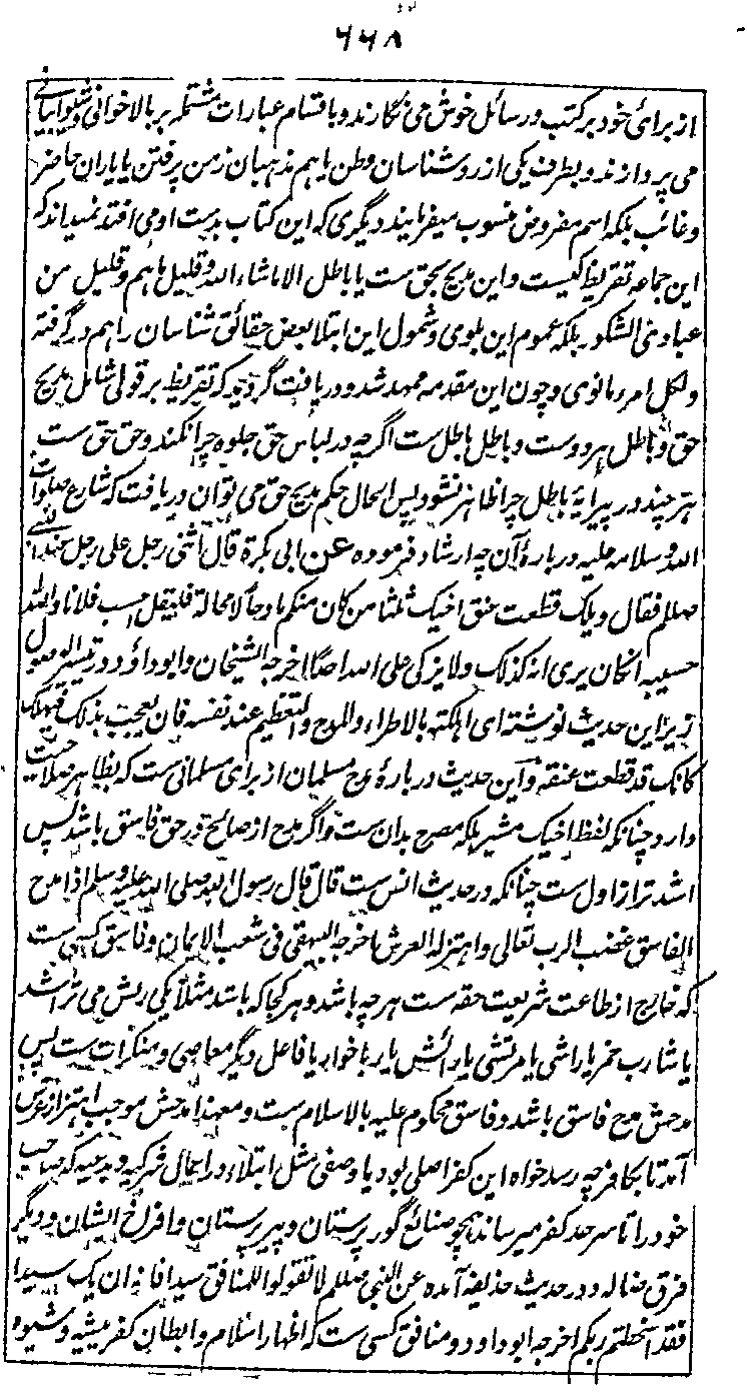 ۶۶۸
از برائ خود بر کتب و رسائل خوش می نگارند و باقسام عبارات مشتمله بر بالاخوانی و شیوابیانی
می پردازند و بطرف یکی از روشناسان وطن یا هم مذهبان زمن پرفتن یا یاران حاضر
و غائب بلکه اسم مفروض منسوب میفرمایند دیگری که این کتاب بدست او می افتد نمیداند که
این جماعه تقریظ کیست و این مدیح بحق ست یا باطل الا ماشاء الله و قلیل ما هم و قلیل من
عبادی الشکور بلکه عموم این بلوی و شمول این ابتلا بعض حقائق شناسان را هم در گرفته
و لکل امرء ما نوی و چون این مقدمه ممهد شد و دریافت گردید که تقریظ بر قولی شامل مدیح
حق و باطل هر دوست و باطل باطل ست اگرچه در لباس حق جلوه چرا نکند و حق حق ست
هر چند در پیرایهٔ باطل چرا ظاهر نشود پس الحال حکم مدیح حق می توان دریافت که شارع صلوات
الله و سلامه علیه در بارهٔ آن چه ارشاد فرموده عن ابی بکرة قال اثنی رجل علی رجل عند النبی
صللم فقال ویلک قطعت عنق اخیک ثلثا من کان منکم مادحا لا محالة فلیقل احسب فلانا والله
حسیبه ان کان یری انه کذلک ولا یزکی علی الله احدا اخرجه الشیخان و ابو داؤد در تیسیر الوصول
زیر این حدیث نوشته ای اهلکته بالاطراء والمدح والتعظیم عند نفسه فان یعجب بذلک فیهلک
کانک قد قطعت عنقه و این حدیث در بارهٔ مدح مسلمان از برای مسلمانی ست که بظاهر صلاحیت
دارد چنانکه لفظ اخیک مشیر بلکه مصرح بدان ست و اگر مدح از صالح در حق فاسق باشد پس
اشد تر از اول ست چنانکه در حدیث انس ست قال قال رسول الله صلی الله علیه وسلم اذا مدح
الفاسق غضب الرب تعالی واهتز له العرش اخرجه البیهقی فی شعب الایمان و فاسق کسی ست
که خارج از طاعت شریعت حقه ست هر چه باشد و هر کجا که باشد مثلاً یکی ریش می تراشد
یا شارب خمر یا راشی یا مرتشی یا رائش یا ربا خوار یا فاعل دیگر معاصی و منکرات ست پس
مدحش مدح فاسق باشد و فاسق محکوم علیه بالاسلام ست و معهذا مدحش موجب اهتزاز عرش
آمد تا بکافر چه رسد خواه این کفر اصلی بود یا وصفی مثل ابتلاء در اعمال شرکیه و بدعیه که صاحب
خود را تا سرحد کفر میرساند همچو صنائع گور پرستان و پیر پرستان و افراخ ایشان و دیگر
فرق ضاله و در حدیث حذیفه آمده عن النبی صللم لا تقولوا للمنافق سیدا فانه ان یک سیدا
فقد اسخطتم ربکم اخرجه ابو داود و منافق کسی ست که اظهار اسلام و ابطان کفر پیشه و شیوه